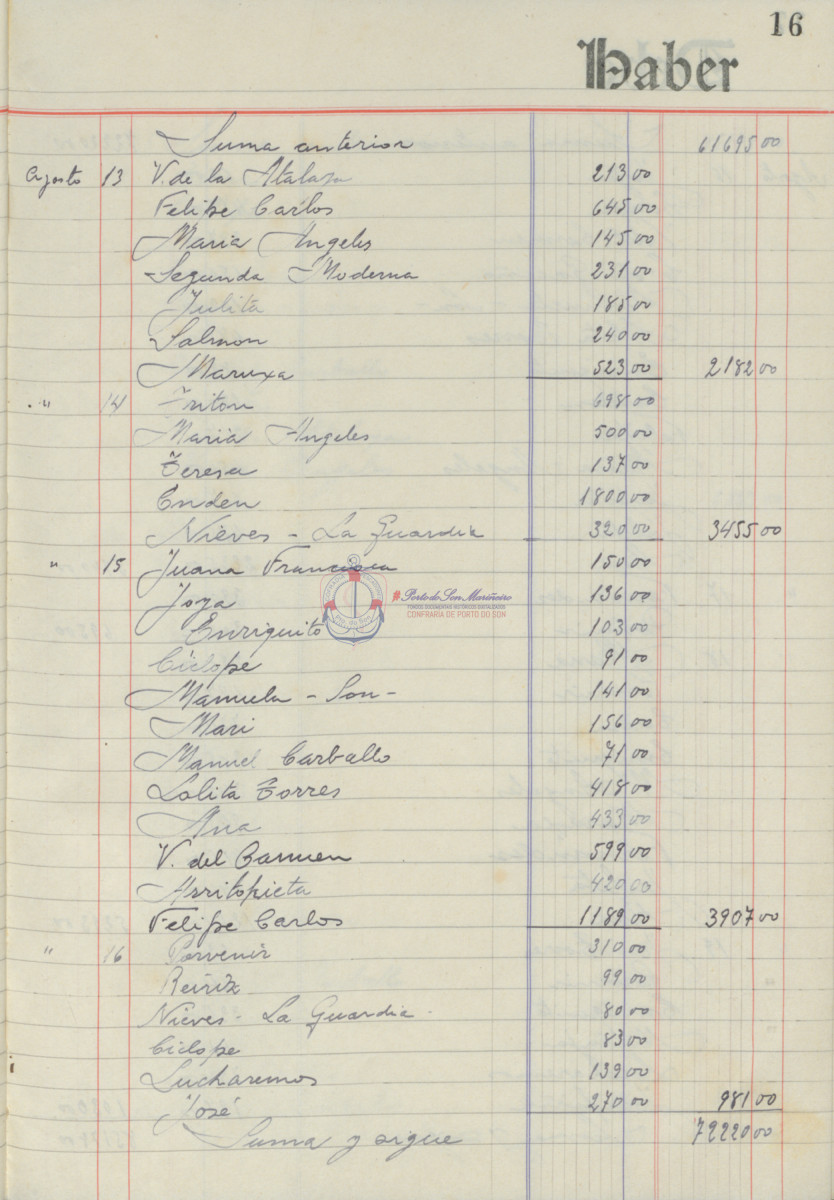 16
Haber
Suma anterior 61695 00
Agosto 13 V. de la Atalaya 213 00
Felipe Carlos 645 00
Maria Angeles 145 00
Segunda Moderna 231 00
Julita 185 00
Salmon 240 00
Maruxa 523 00 2182 00
" 14 Triton 698 00
Maria Angeles 500 00
Teresa 137 00
Enden 1800 00
Nieves - La Guardia 320 00 3455 00
" 15 Juana Francisca 150 00
Joya 136 00
Enriquito 103 00
Ciclope 91 00
Manuela - Son - 141 00
Mari 156 00
Manuel Carballo 71 00
Lolita Torres 418 00
Ana 433 00
V. del Carmen 599 00
Arritopieta 420 00
Felipe Carlos 1189 00 3907 00
" 16 Porvenir 310 00
Reiriz 99 00
Nieves - La Guardia 80 00
Ciclope 83 00
Lucharemos 139 00
José 270 00 981 00
Suma y sigue 72220 00
#PortodoSon Mariñeiro
FONDOS DOCUMENTAIS HISTÓRICOS DIXITALIZADOS
CONFRARÍA DE PORTO DO SON